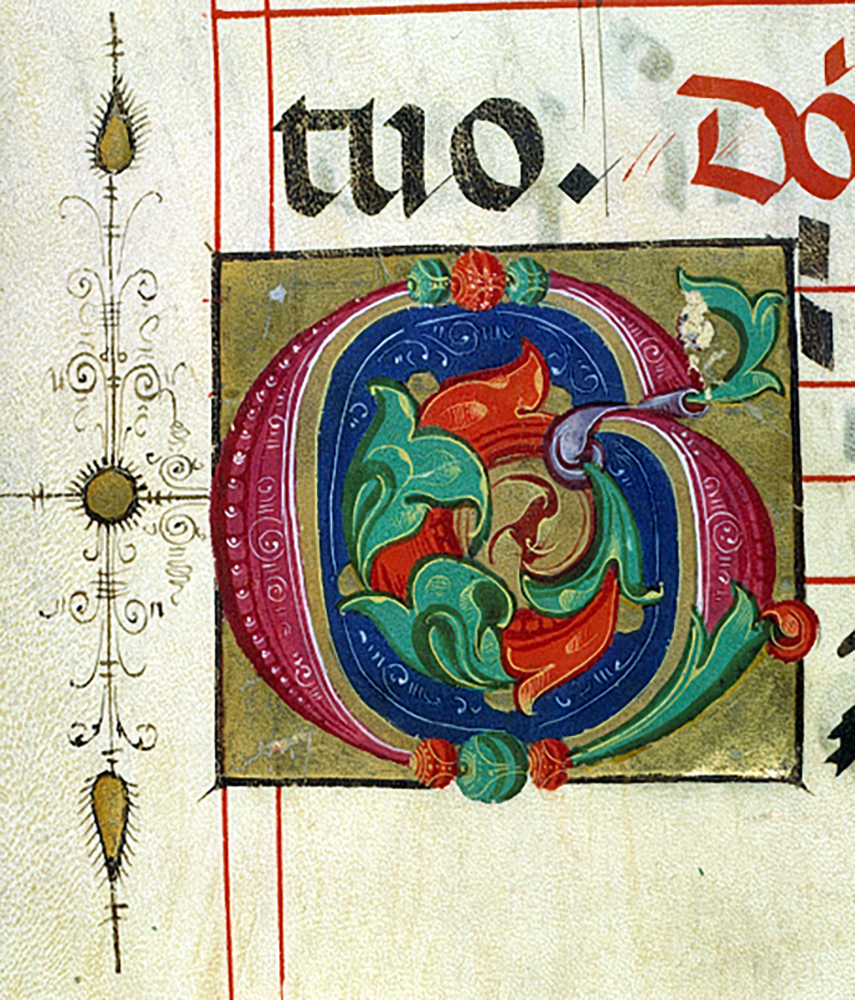 tuo. Dó
G